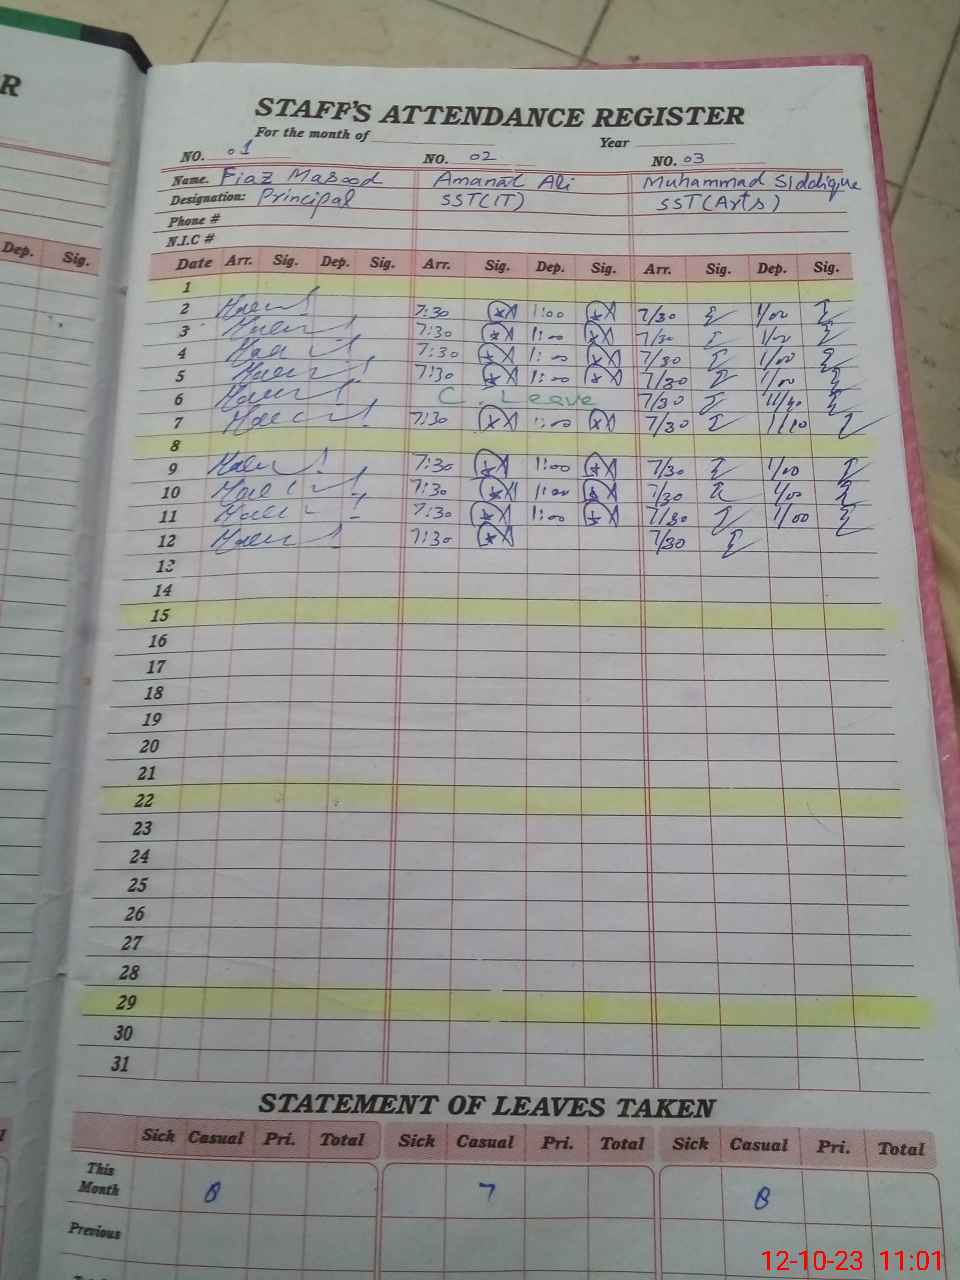 R
STAFF'S ATTENDANCE REGISTER
For the month of Year
NO. 01 NO. 02 NO. 03
Name. Fiaz Masood Amanat Ali Muhammad Siddique
Designation: Principal SST(IT) SST(Arts)
Phone #
N.I.C #
Dep. Sig.
Date Arr. Sig. Dep. Sig. Arr. Sig. Dep. Sig. Arr. Sig. Dep. Sig.
1
2 7:30 1:00 7/30 1/00
3 7:30 1:00 7/30 1/00
4 7:30 1:00 7/30 1/00
5 7:30 1:00 7/30 1/00
6 C. Leave 7/30
7 7:30 1:00 7/30
8
9 7:30 1:00 7/30 1/00
10 7:30 1:00 7/30 1/00
11 7:30 1:00 7/30 1/00
12 7:30 7/30
13
14
15
16
17
18
19
20
21
22
23
24
25
26
27
28
29
30
31
STATEMENT OF LEAVES TAKEN
Sick Casual Pri. Total Sick Casual Pri. Total Sick Casual Pri. Total
This
Month 8 7 8
Previous
12-10-23 11:01